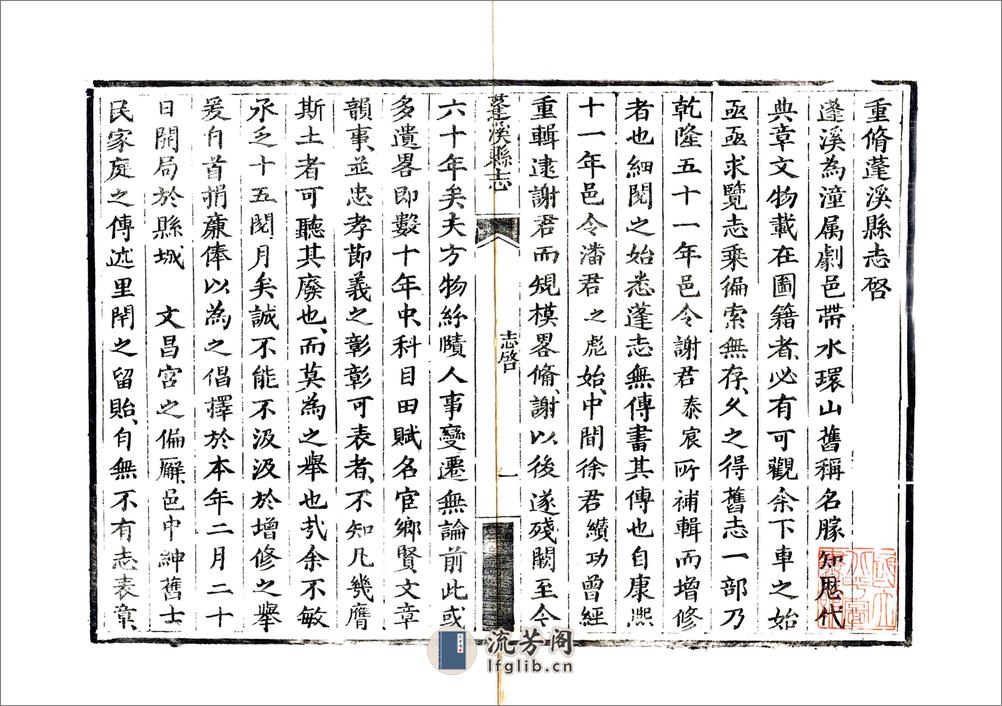 重脩蓬溪縣志啓
蓬溪為潼属劇邑帶水環山舊稱名勝知歷代
典章文物載在圖籍者必有可觀余下車之始
亟亟求覽志乘徧索無存久之得舊志一部乃
乾隆五十一年邑令謝君泰宸所補輯而增修
者也細閱之始悉蓬志無傳書其傳也自康熙
十一年邑令潘君之彪始中間徐君纘功曾經
重輯逮謝君而規模畧備謝以後遂殘闕至今
蓬溪縣志
志啓
一
六十年矣夫方物紛賾人事變遷無論前此或
多遺畧即數十年中科目田賦名宦鄉賢文章
韻事並忠孝節義之彰彰可表者不知凡幾膺
斯土者可聽其廢也而莫為之舉也㢤余不敏
承乏十五閱月矣誠不能不汲汲於增修之舉
爰自首捐廉俸以為之倡擇於本年二月二十
日開局於縣城　文昌宮之偏廨邑中紳舊士
民家庭之傳述里閈之留貽自無不有志表章
流芳阁
lfglib.cn